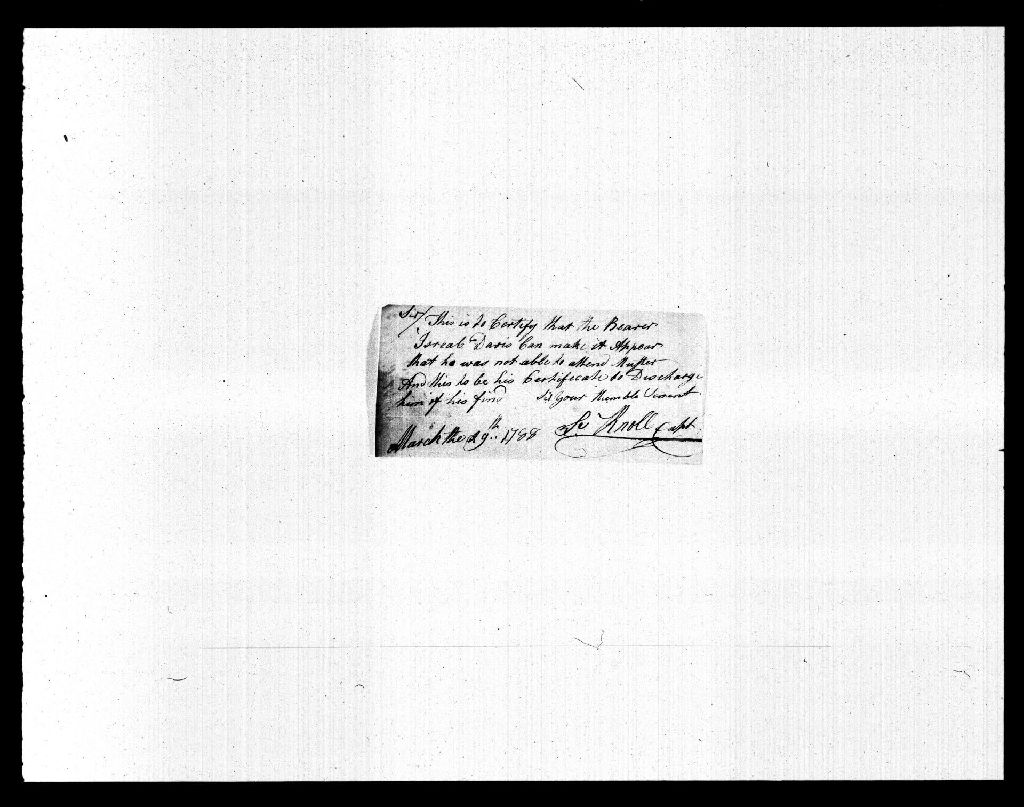 Sir/ This is to Certify that the Bearer
Isreal Davis Can make it Appear
that he was not able to attend Muster
And this to be his Certificate to Discharge
him of his find Sir your Humble Servant
March the 29th 1788 Knoll Capt